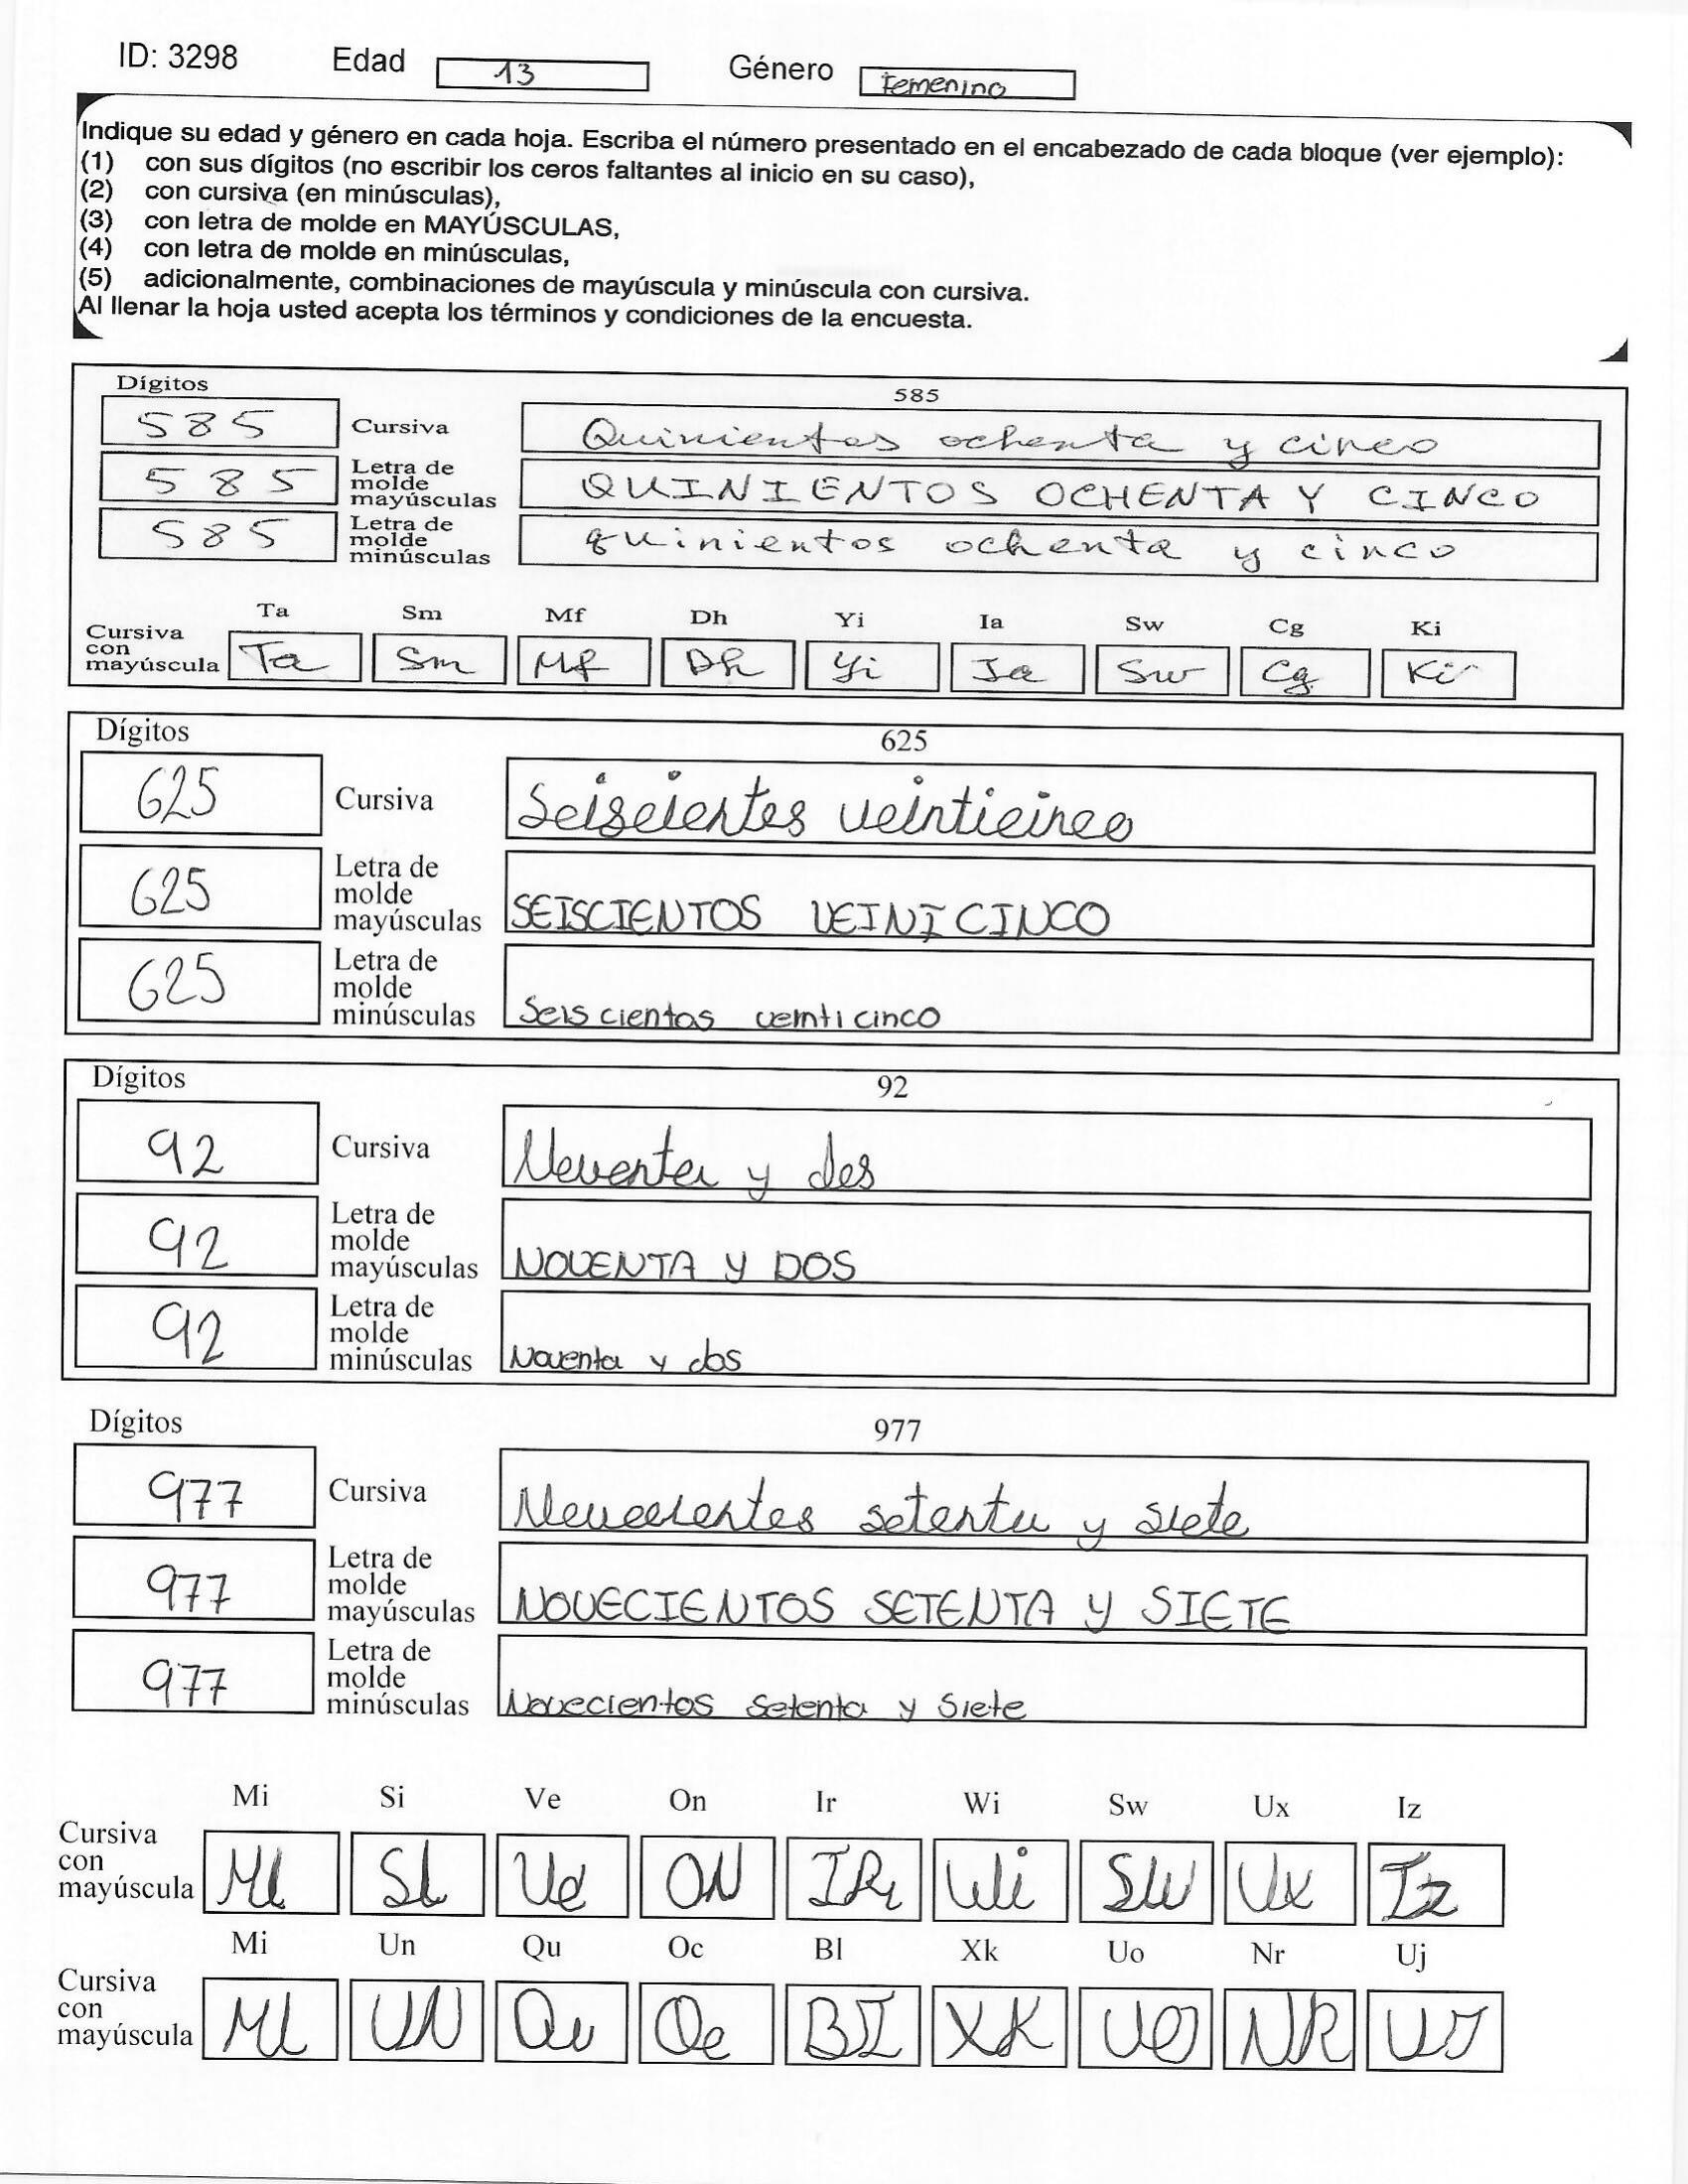 ID: 3298 Edad 13 Género femenino
Indique su edad y género en cada hoja. Escriba el número presentado en el encabezado de cada bloque (ver ejemplo):
(1) con sus dígitos (no escribir los ceros faltantes al inicio en su caso),
(2) con cursiva (en minúsculas),
(3) con letra de molde en MAYÚSCULAS,
(4) con letra de molde en minúsculas,
(5) adicionalmente, combinaciones de mayúscula y minúscula con cursiva.
Al llenar la hoja usted acepta los términos y condiciones de la encuesta.
Dígitos 585
585 Cursiva Quinientos ochenta y cinco
585 Letra de molde mayúsculas QUINIENTOS OCHENTA Y CINCO
585 Letra de molde minúsculas quinientos ochenta y cinco
Ta Sm Mf Dh Yi Ia Sw Cg Ki
Cursiva con mayúscula Ta Sm Mf Dh Yi Ia Sw Cg Ki
Dígitos 625
625 Cursiva Seiscientos veinticinco
625 Letra de molde mayúsculas SEISCIENTOS VEINICINCO
625 Letra de molde minúsculas Seiscientos veinticinco
Dígitos 92
92 Cursiva Noventa y dos
92 Letra de molde mayúsculas NOVENTA Y DOS
92 Letra de molde minúsculas Noventa y dos
Dígitos 977
977 Cursiva Novecientos setenta y siete
977 Letra de molde mayúsculas NOVECIENTOS SETENTA Y SIETE
977 Letra de molde minúsculas Novecientos Setenta y Siete
Mi Si Ve On Ir Wi Sw Ux Iz
Cursiva con mayúscula Mi Si Ve ON IR Wi SW Ux Iz
Mi Un Qu Oc Bl Xk Uo Nr Uj
Cursiva con mayúscula Mi UN Qu Oc BI XK UO NR UJ